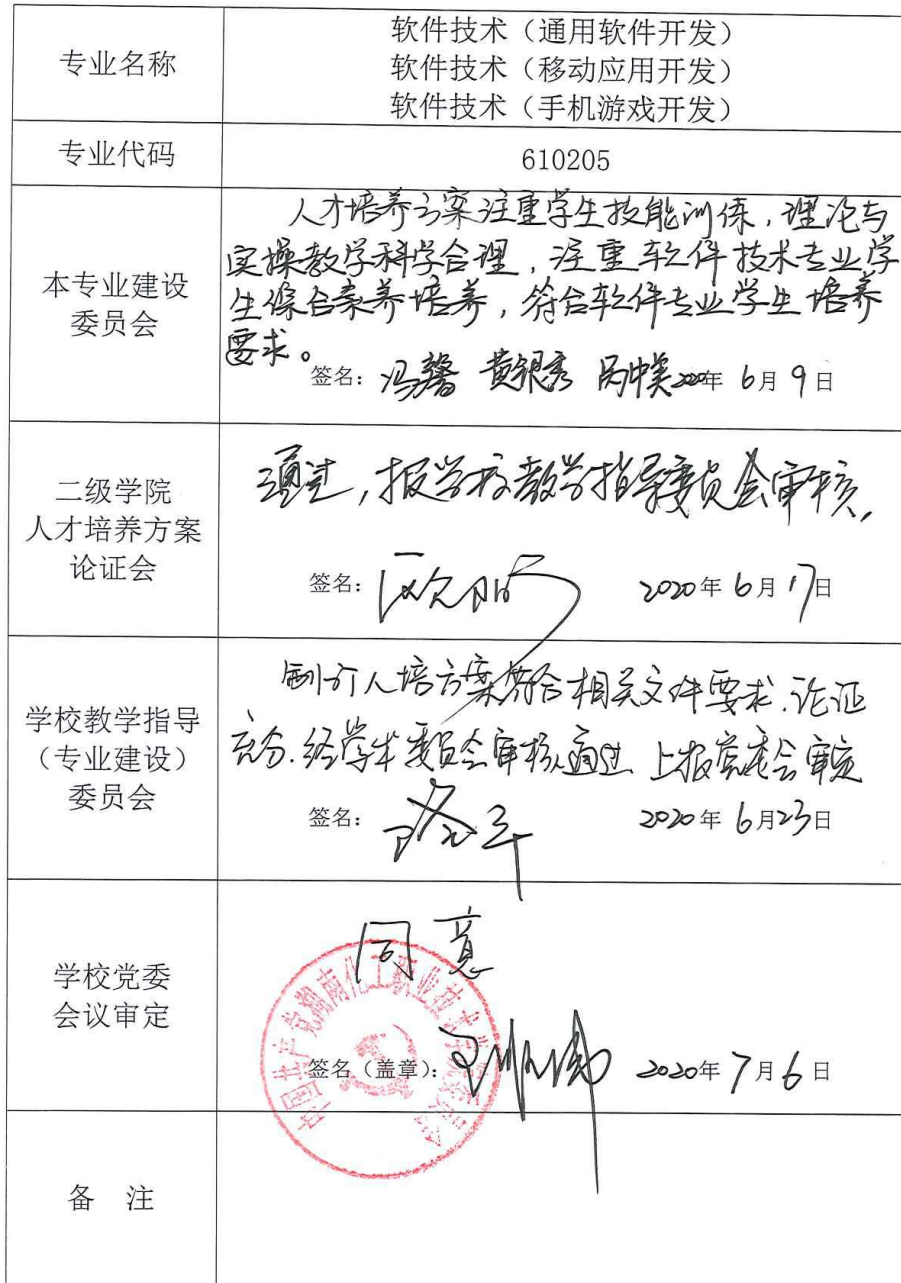 专业名称
软件技术（通用软件开发）
软件技术（移动应用开发）
软件技术（手机游戏开发）
专业代码
610205
本专业建设
委员会
人才培养方案注重学生技能训练，理论与
实操教学科学合理，注重软件技术专业学
生综合素养培养，符合软件专业学生培养
要求。
签名：冯馨 黄银秀 2020年6月9日
二级学院
人才培养方案
论证会
通过，报学校教学指导委员会审核，
签名： 2020年6月17日
学校教学指导
（专业建设）
委员会
制订人培方案符合相关文件要求.论证
充分.经学术委员会审核通过 上报党委会审定
签名： 2020年6月23日
学校党委
会议审定
同意
中国共产党湖南化工职业技术学院委员会
签名（盖章）： 2020年7月6日
备 注